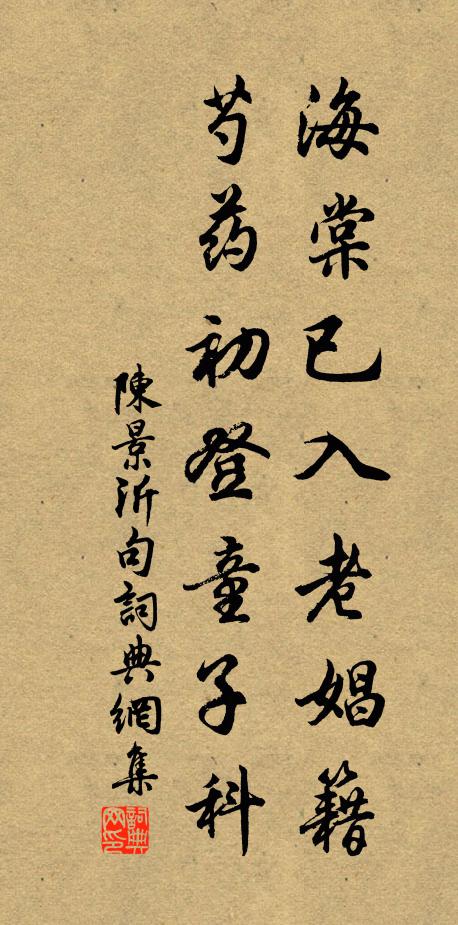 海棠已入老娼籍
芍药初登童子科
陳景沂句詞典網集
詞典网印